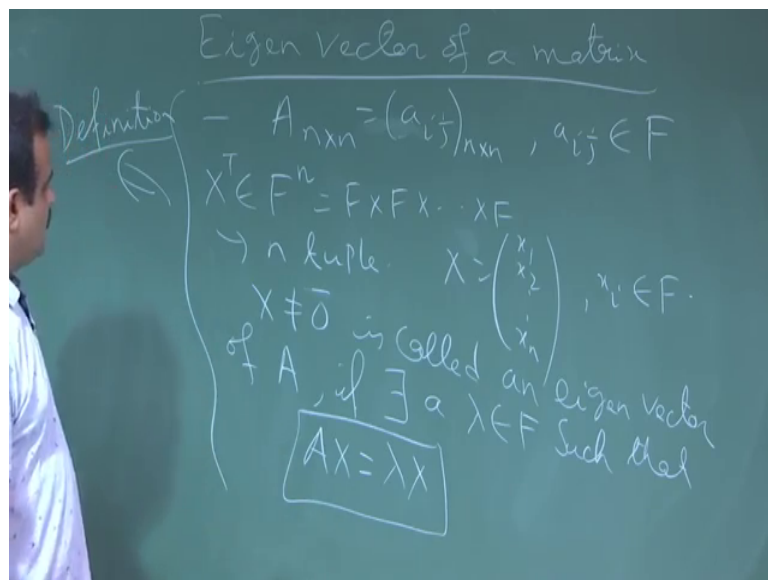 Eigen vector of a matrix
Definition
- Aₙₓₙ = (aᵢⱼ)ₙₓₙ , aᵢⱼ ∈ F
Xᵀ ∈ Fⁿ = F×F×...×F
↳ n tuple. X = (x₁ x₂ ⋮ xₙ) , xᵢ ∈ F.
X ≠ 0̄ is called an eigen vector
of A, if ∃ a λ ∈ F such that
AX = λX